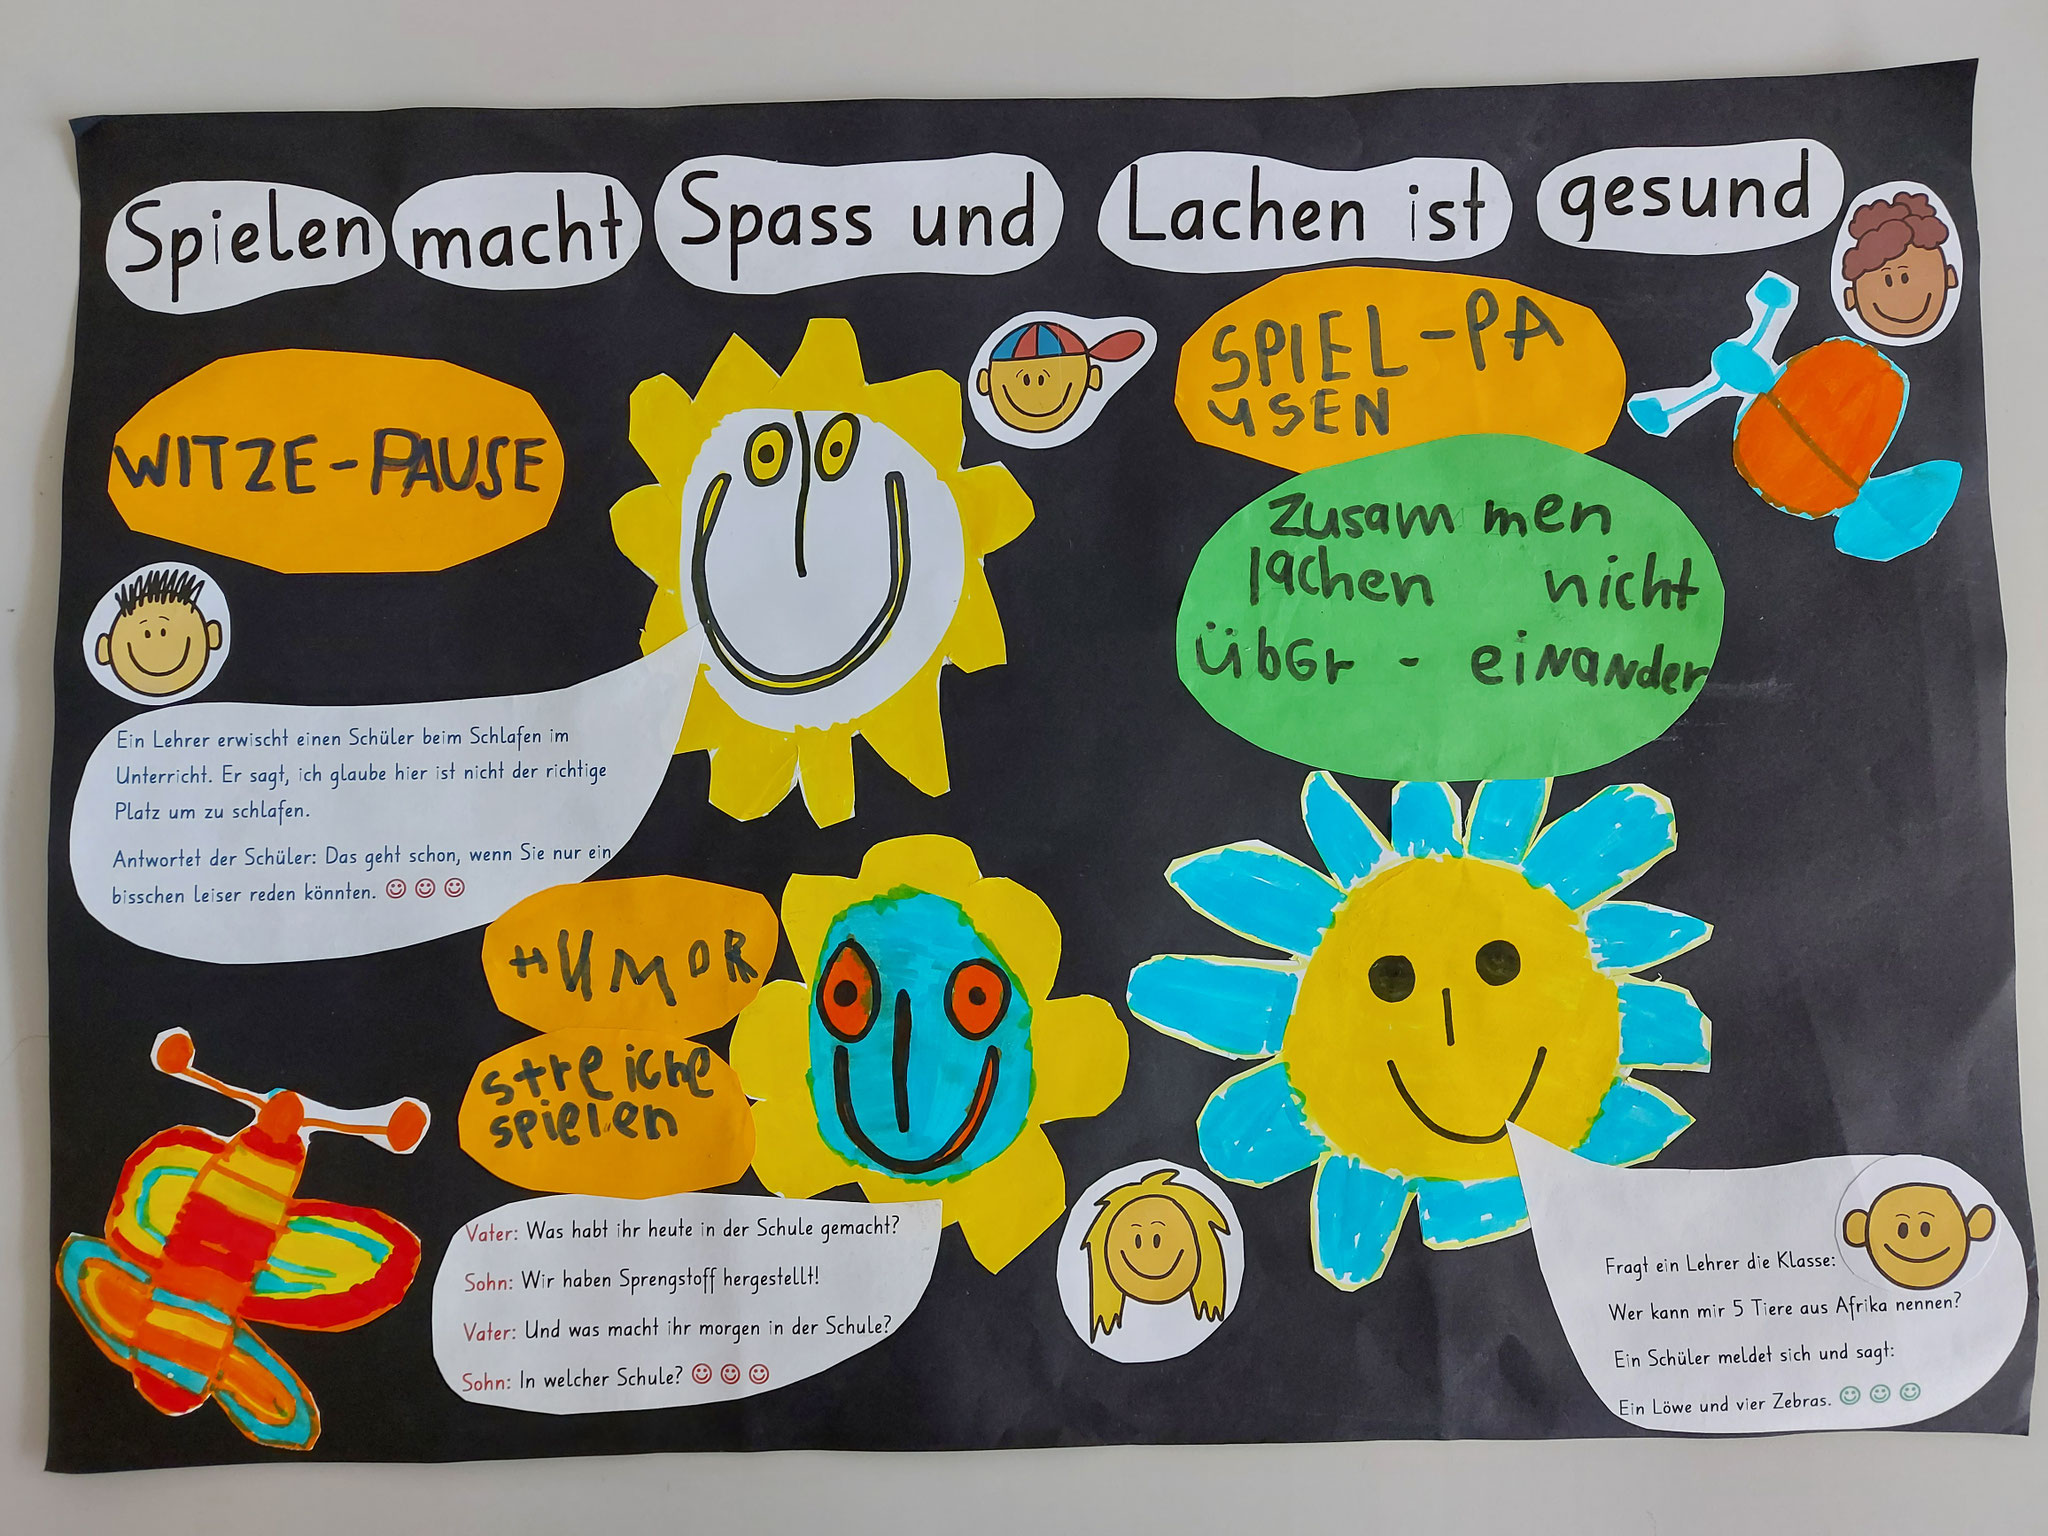 Spielen macht Spass und Lachen ist gesund
WITZE-PAUSE
Ein Lehrer erwischt einen Schüler beim Schlafen im
Unterricht. Er sagt, ich glaube hier ist nicht der richtige
Platz um zu schlafen.
Antwortet der Schüler: Das geht schon, wenn Sie nur ein
bisschen leiser reden könnten.
SPIEL-PA
USEN
zusammen
lachen nicht
über - einander
HUMOR
streiche
spielen
Vater: Was habt ihr heute in der Schule gemacht?
Sohn: Wir haben Sprengstoff hergestellt!
Vater: Und was macht ihr morgen in der Schule?
Sohn: In welcher Schule?
Fragt ein Lehrer die Klasse:
Wer kann mir 5 Tiere aus Afrika nennen?
Ein Schüler meldet sich und sagt:
Ein Löwe und vier Zebras.